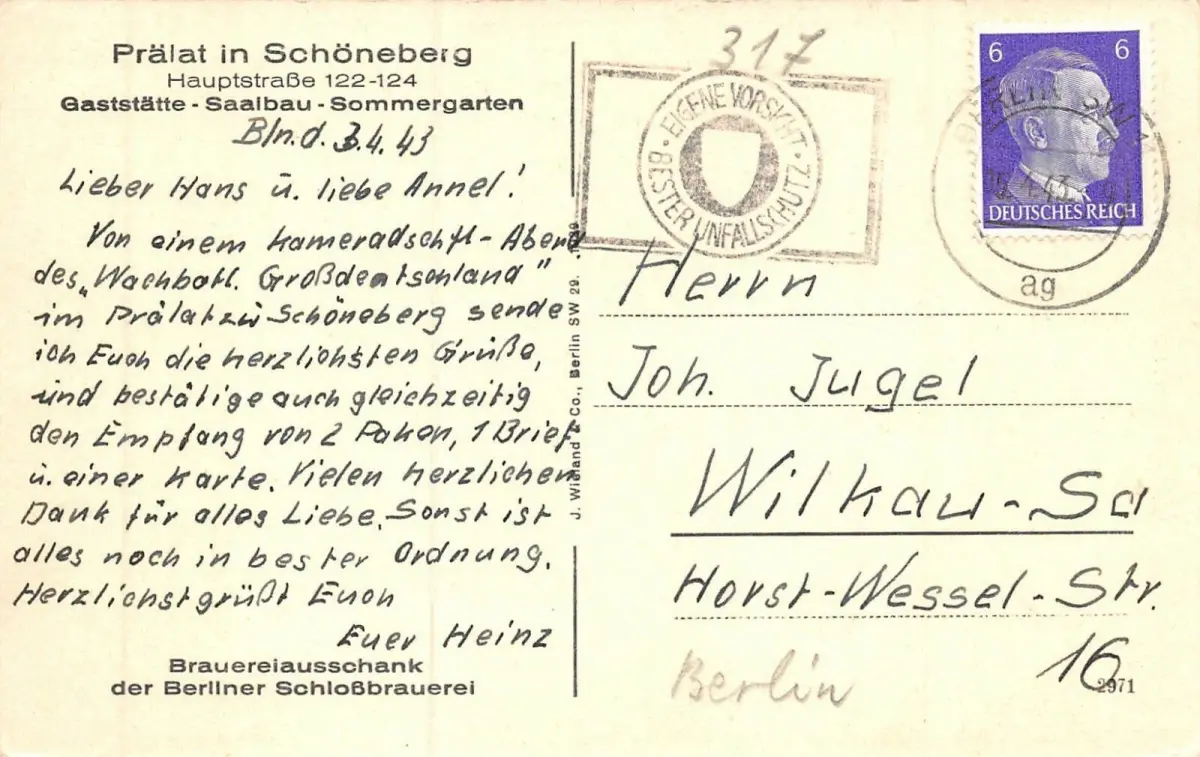 Prälat in Schöneberg
Hauptstraße 122-124
Gaststätte - Saalbau - Sommergarten
Bln.d. 3.4.43
Lieber Hans u. liebe Annel!
Von einem Kameradschft-Abend
des „Wachbatl. Großdeutschland"
im Prälat zu Schöneberg sende
ich Euch die herzlichsten Grüße,
und bestätige auch gleichzeitig
den Empfang von 2 Paken, 1 Brief
u. einer Karte. Vielen herzlichen
Dank für alles Liebe. Sonst ist
alles noch in bester Ordnung.
Herzlichst grüßt Euch
Euer Heinz
Brauereiausschank
der Berliner Schloßbrauerei
J. Wieland & Co., Berlin SW 29.
317
EIGENE VORSICHT · BESTER UNFALLSCHUTZ ·
6 6
DEUTSCHES REICH
BERLIN SW
4.43
ag
Herrn
Joh. Jugel
Wilkau-Sa
Horst-Wessel-Str.
16
2971
Berlin